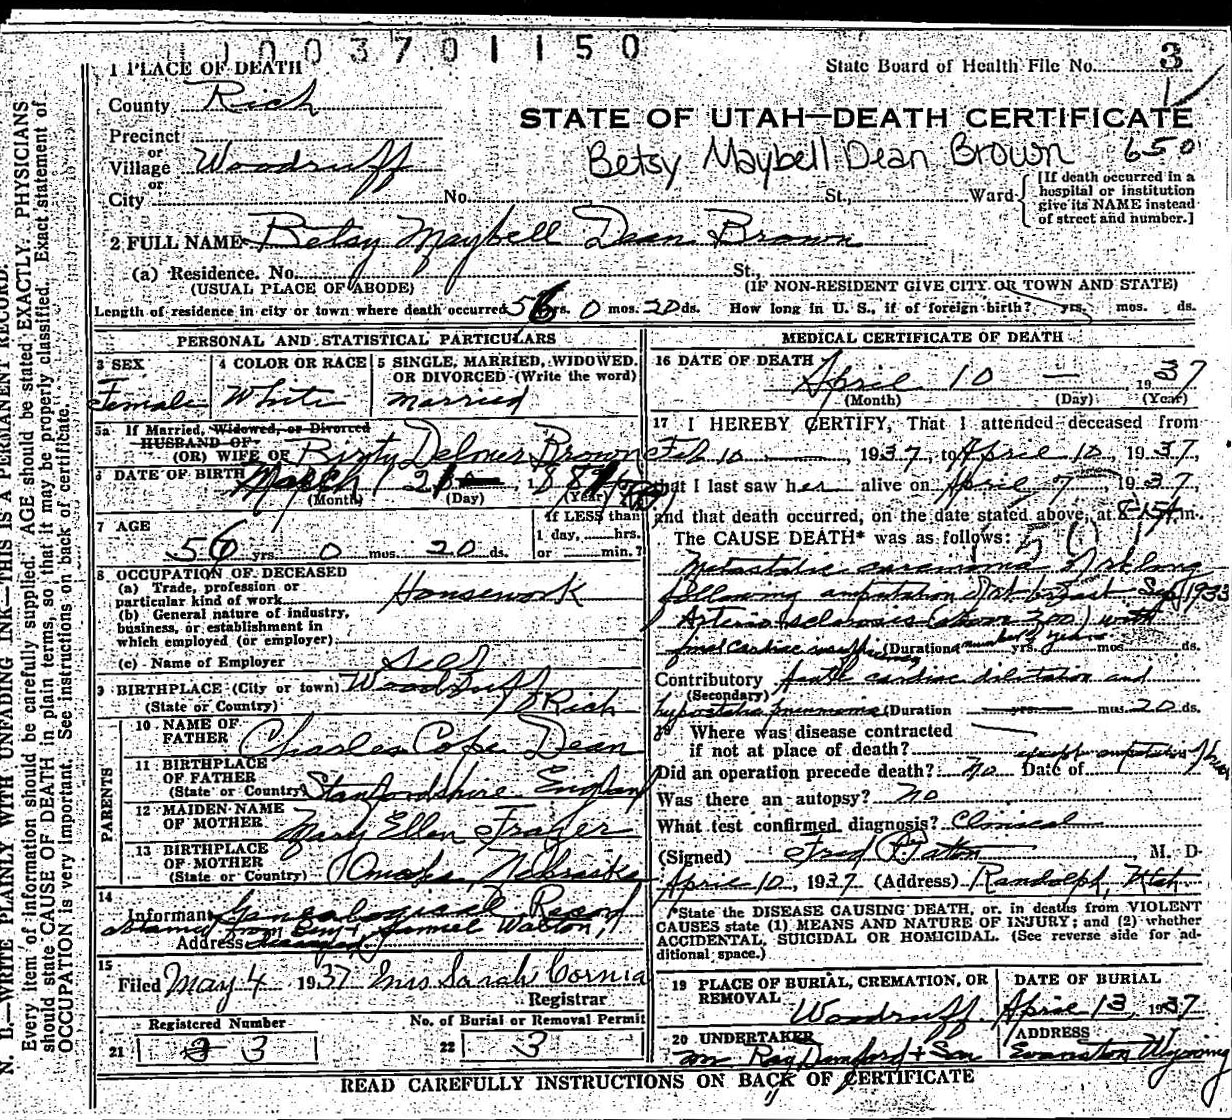 1003701150
1 PLACE OF DEATH
State Board of Health File No. 3
County Rich
STATE OF UTAH—DEATH CERTIFICATE
Precinct
or
Village Woodruff
Betsy Maybell Dean Brown 650
or
City No. St., Ward
[If death occurred in a hospital or institution give its NAME instead of street and number.]
2 FULL NAME Betsy Maybell Dean Brown
(a) Residence. No. St.,
(USUAL PLACE OF ABODE) (IF NON-RESIDENT GIVE CITY OR TOWN AND STATE)
Length of residence in city or town where death occurred 56 yrs. 0 mos. 20 ds. How long in U. S., if of foreign birth? yrs. mos. ds.
PERSONAL AND STATISTICAL PARTICULARS
3 SEX Female
4 COLOR OR RACE White
5 SINGLE, MARRIED, WIDOWED, OR DIVORCED (Write the word)
Married
5a If Married, Widowed, or Divorced
HUSBAND OF
(OR) WIFE OF Delmer Brown
6 DATE OF BIRTH March 21
(Month) (Day) (Year)
7 AGE 56 yrs. 0 mos. 20 ds.
If LESS than
1 day, hrs.
or min.?
8 OCCUPATION OF DECEASED
(a) Trade, profession or
particular kind of work Housework
(b) General nature of industry,
business, or establishment in
which employed (or employer)
(c) Name of Employer Self
9 BIRTHPLACE (City or town) Woodruff
(State or Country) Rich
PARENTS
10 NAME OF FATHER Charles Cope Dean
11 BIRTHPLACE OF FATHER
(State or Country) Stanfordshire England
12 MAIDEN NAME OF MOTHER Mary Ellen Frazer
13 BIRTHPLACE OF MOTHER
(State or Country) Omaha, Nebraska
14
Informant Genealogical Record
obtained from Samuel Walton,
Address
15
Filed May 4 1937 Mrs Sarah Cornia
Registrar
Registered Number
21 3
No. of Burial or Removal Permit
22 3
MEDICAL CERTIFICATE OF DEATH
16 DATE OF DEATH
April 10 — 1937
(Month) (Day) (Year)
17 I HEREBY CERTIFY, That I attended deceased from
Feb 10 , 1937, to April 10, 1937,
that I last saw her alive on April 7 1937,
and that death occurred, on the date stated above, at 8-15A m.
The CAUSE DEATH* was as follows:
Metastatic carcinoma Rt lung
following amputation Rt breast Sept 1933
Arterio sclerosis with
cardiac (Duration number yrs. years mos. ds.
Contributory Acute cardiac dilatation and
(Secondary)
hypostatic pneumonia (Duration yrs. mos. 20 ds.
18 Where was disease contracted
if not at place of death?
Did an operation precede death? No Date of except amputation
Was there an autopsy? No
What test confirmed diagnosis? Clinical
(Signed) M. D
April 10, 1937 (Address) Randolph, Utah
*State the DISEASE CAUSING DEATH, or, in deaths from VIOLENT
CAUSES state (1) MEANS AND NATURE OF INJURY; and (2) whether
ACCIDENTAL, SUICIDAL OR HOMICIDAL. (See reverse side for ad-
ditional space.)
19 PLACE OF BURIAL, CREMATION, OR REMOVAL
Woodruff
DATE OF BURIAL
April 13, 1937
20 UNDERTAKER
+ Son
ADDRESS
Evanston Wyoming
READ CAREFULLY INSTRUCTIONS ON BACK OF CERTIFICATE
N. B.—WRITE PLAINLY WITH UNFADING INK—THIS IS A PERMANENT RECORD.
Every item of information should be carefully supplied. AGE should be stated EXACTLY. PHYSICIANS
should state CAUSE OF DEATH in plain terms, so that it may be properly classified. Exact statement of
OCCUPATION is very important. See instructions on back of certificate.